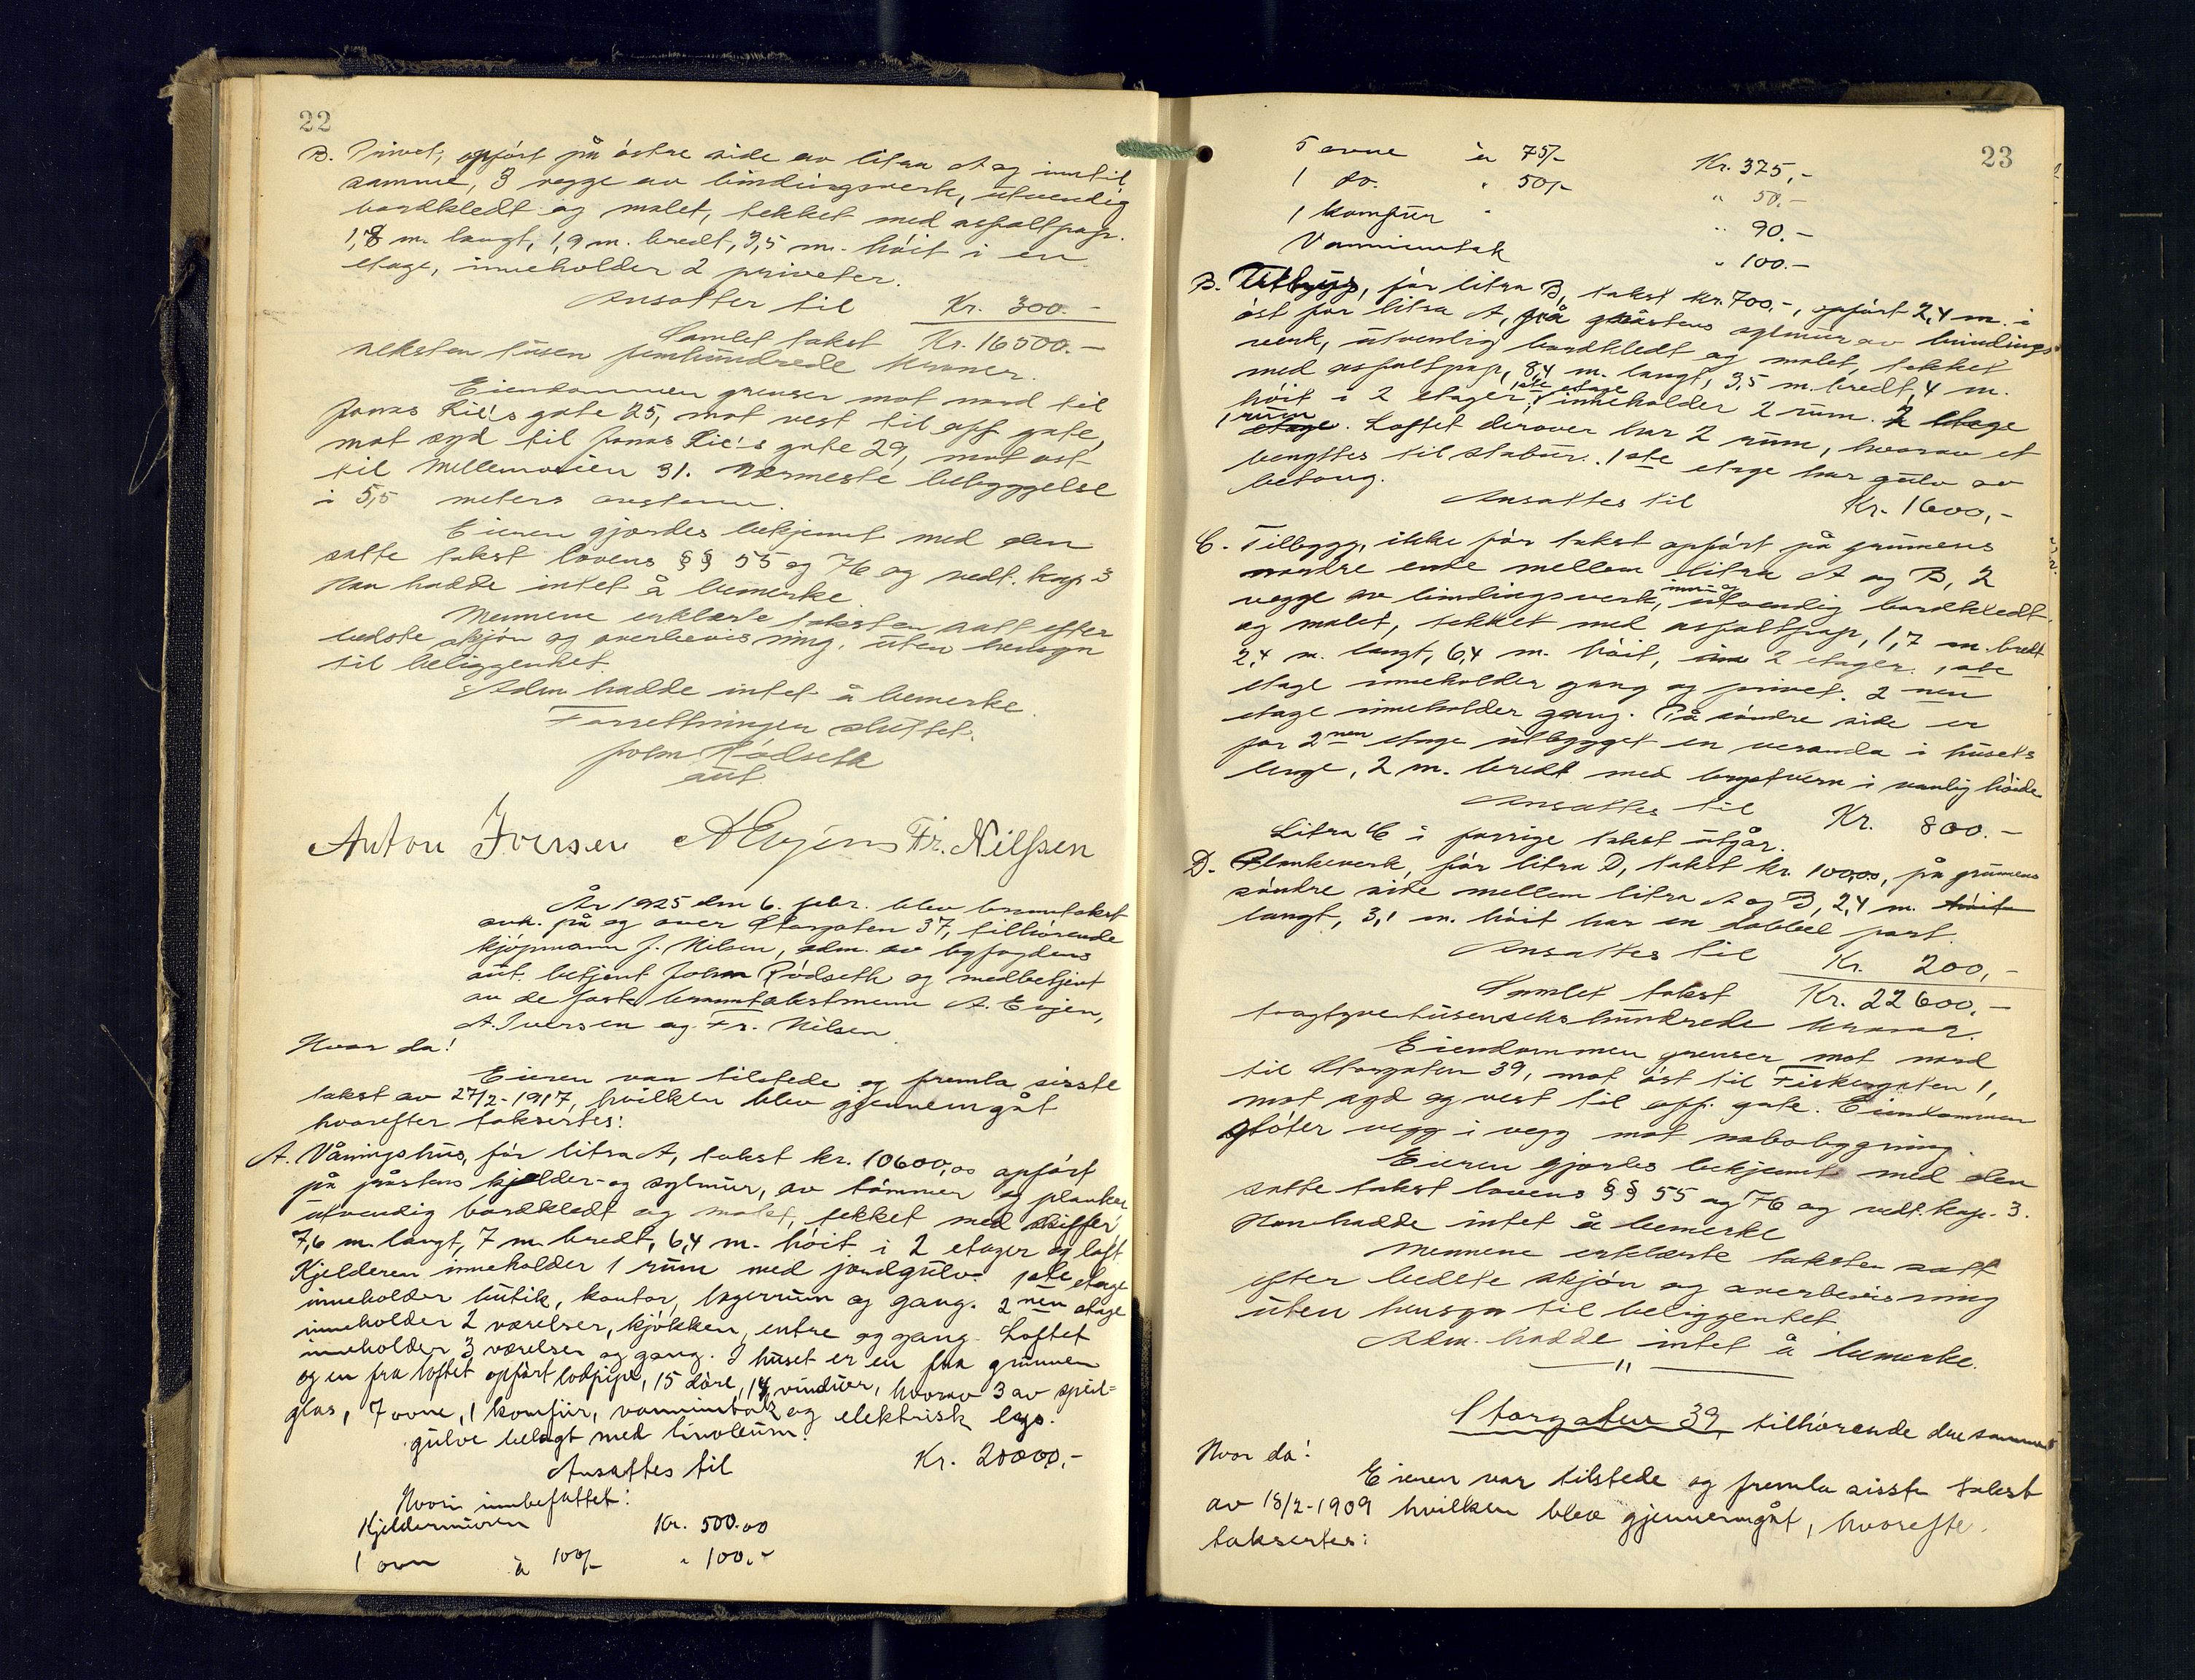 22
B. Privet, opført på østre side av litra A og inntil
samme, 3 vegge av bindingsverk, utvendig
bordkledt og malet, tekket med asfaltpap.
1,8 m. langt, 1,9 m. bredt, 3,5 m. høit i en
etage, inneholder 2 priveter.
Ansattes til Kr. 300.-
Samlet takst Kr. 16500.-
seksten tusen femhundrede kroner.
Eiendommen grenser mot nord til
Jonas Lie's gate 25, mot vest til off. gate,
mot syd til Jonas Lie's gate 29, mot øst
til Mellemveien 31. Nærmeste bebyggelse
i 5,5 meters avstann.
Eieren gjordes bekjennt med den
satte takst lovens §§ 55 og 76 og vedt. kap 3
Han hadde intet å bemerke.
Mennene erklærte taksten satt efter
bedste skjøn og overbevisning, uten hensyn
til beliggenhet.
Adm. hadde intet å bemerke.
Forretningen sluttet.
John Rødseth
aut.
Anton Iversen A Evjen Fr. Nilssen
År 1925 den 6. febr. blev branntakst
avh. på og over Storgaten 37, tilhørende
kjøpmann J. Nilsen, adm. av byfogdens
aut. betjent John Rødseth og medbetjent
av de faste branntakstmenn A. Evjen,
A. Iversen og Fr. Nilsen.
Hvor da!
Eieren var tilstede og fremla sisste
takst av 27/2-1917, hvilken blev gjennemgåt
hvorefter taksertes:
A. Våningshus, før litra A, takst kr. 10600,00 opført
på gråstens kjelder- og sylmur, av tømmer og planker
utvendig bordkledt og malet, tekket med skiffer
7,6 m. langt, 7 m. bredt, 6,4 m. høit i 2 etager og loft
Kjelderen inneholder 1 rum med jordgulv. 1ste etage
inneholder butik, kontor, lagerrum og gang. 2nen etage
inneholder 2 værelser, kjøkken, entre og gang. Loftet
inneholder 3 værelser og gang. I huset er en fra grunnen
og en fra loftet opført lodpipe, 15 døre, 14 vinduer, hvorav 3 av speil-
glas, 7 ovne, 1 komfur, vanninntak og elektrisk lys.
gulve belagt med linoleum.
Ansattes til Kr. 20000,-
Hvori innbefattet:
Kjeldermuren Kr. 500.00
1 ovn à 100/- " 100.-
23
5 ovne à 75/- Kr. 375,-
1 do. " 50/- " 50.-
1 komfur " " 90.-
Vanninntak " 100.-
B. Utbygg, før litra B, takst kr. 700,-, opført 2,4 m. i
øst for litra A, på gråstens sylmur av bindings
verk, utvendig bordkledt og malet, tekket
med asfaltpap, 8,4 m. langt, 3,5 m. bredt, 4 m.
høit i 2 etager, 1ste etage inneholder 2 rum. 2 etage
1 rum etage. Loftet derover har 2 rum, hvorav et
benyttes til stabur. 1ste etage har gulv av
betong.
Ansattes til Kr. 1600,-
C. Tilbygg, ikke før takst opført på grunnens
nordre ende mellem litra A og B, 2
vegge av bindingsverk, utvendig bordkledt
og malet, tekket med asfaltpap, 1,7 m. bredt
2,4 m. langt, 6,4 m. høit, 2 etager. 1ste
etage inneholder gang og privet. 2nen
etage inneholder gang. På søndre side er
for 2nen etage utbygget en veranda i husets
lenge, 2 m. bredt med brystvern i vanlig høide.
Ansattes til Kr. 800.-
Litra C i forrige takst utgår.
D. Plankeverk, før litra D, takst kr. 100,00, på grunnens
søndre side mellem litra A og B, 2,4 m. høit
langt, 3,1 m. høit har en dobbel port.
Ansattes til Kr. 200,-
Samlet takst Kr. 22600,-
toogtyvetusensekshundrede kroner.
Eiendommen grenser mot nord
til Storgaten 39, mot øst til Fiskergaten 1,
mot syd og vest til off. gate. Eiendommen
støter vegg i vegg mot nabobygning.
Eieren gjordes bekjennt med den
satte takst lovens §§ 55 og 76 og vedt. kap. 3.
Han hadde intet å bemerke
Mennene erklærte taksten satt
efter bedste skjøn og overbevisning
uten hensyn til beliggenhet
Adm. hadde intet å bemerke.
— " —
Storgaten 39, tilhørende den samme
Hvor da!
Eieren var tilstede og fremla sisste takst
av 18/2-1909 hvilken blev gjennemgåt, hvorefter
taksertes: